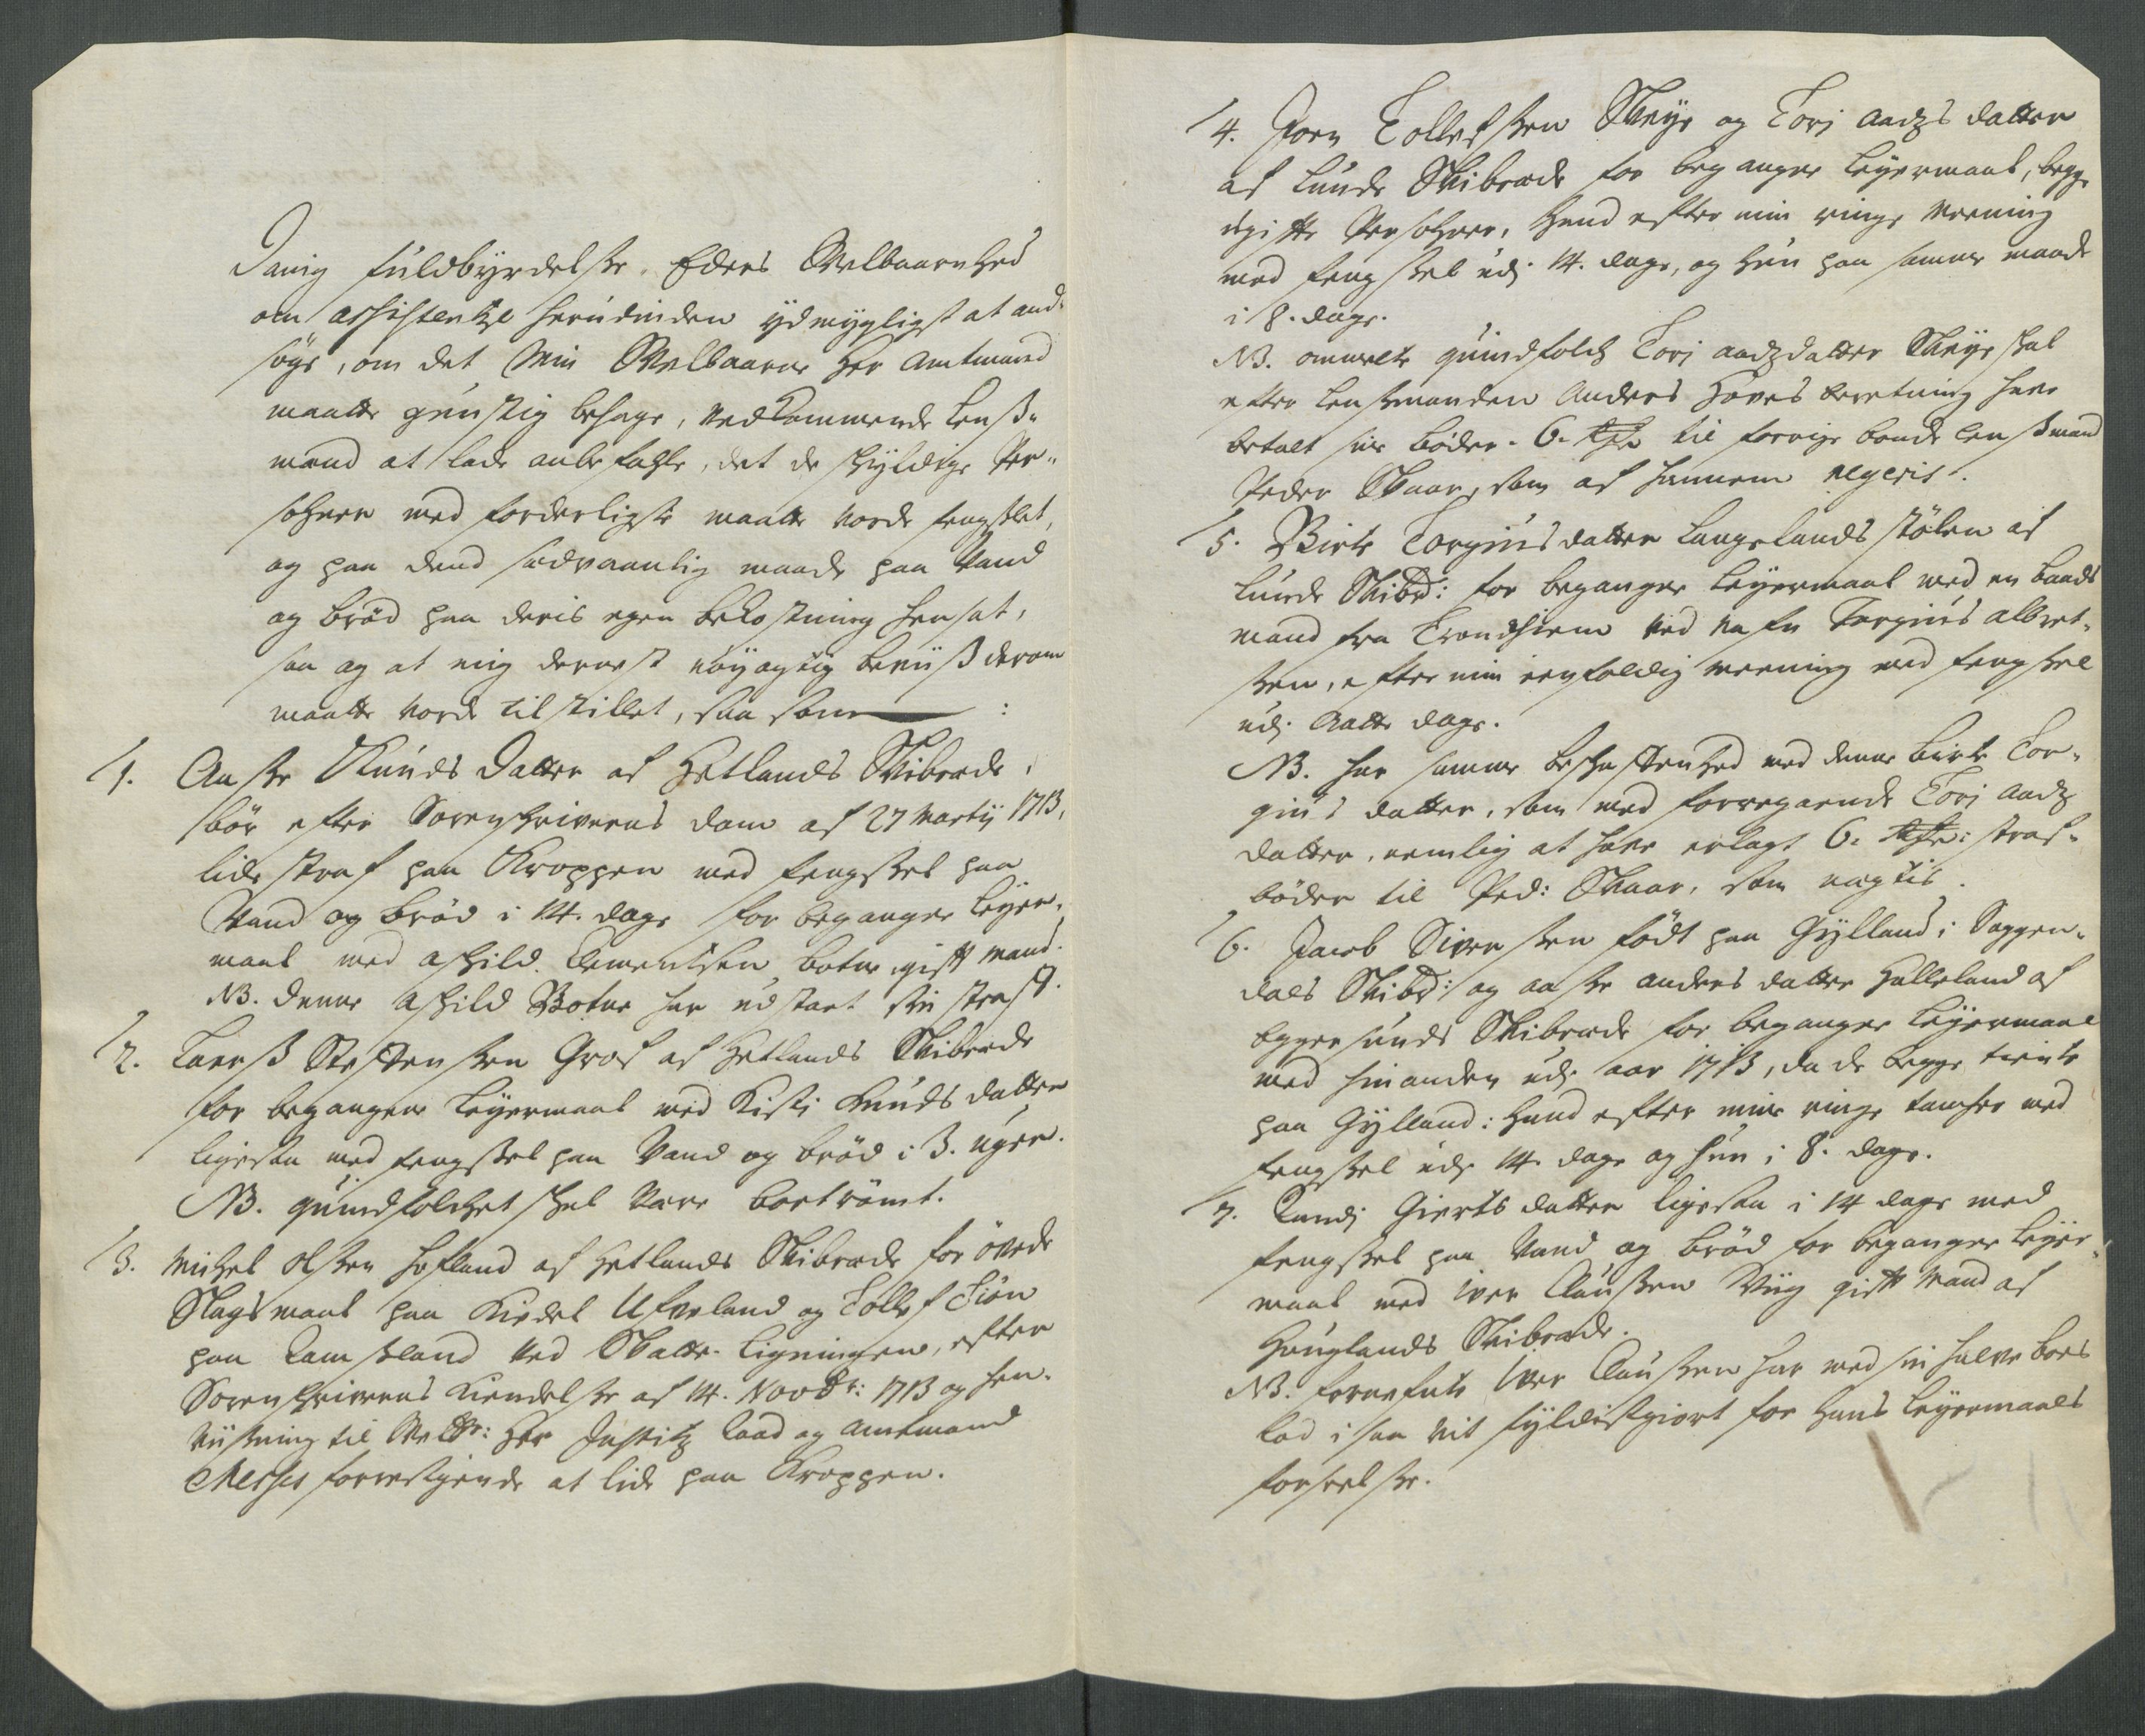 fuldbyrdelsse. Eders Velbaarnhed
om assistentze herudinden ydmygligst at and-
søge, om det Min Velbaarne Her Amtmand
maatte gunstig behage, vedkommende Lenss-
mend at lade anbefahle, det de schyldige Per-
sohner med forderligste maatte vorde fengslet,
og paa dend sedvaanlig maade paa Vand
og brød paa deris egen bekostning hensat,
saa og at mig dernest nøyagtig beviiss derom
maatte vorde tilstillet, saa som :
1. Aasse Knuds Datter af Hetlands Skibrede,
bør efter Sorenschriverens dom af 27 Martij 1713,
lide straf paa Kroppen med fengssel paa
Vand og brød i 14. dage for begangne Leyer-
maal med Aschild Clementsen Botne gift mand.
NB. denne Aschild Botne har udstaaet sin straf.
2. Laerss Steffenssen Groes af Hetlands Skibrede
for begangene Leyermaal med Kisti Knuds datter
ligesaa med fengssel paa Vand og brød i 3. uger.
NB. quindfolchet schal være bortrømt.
3. Michel Olssen Hofland af Hetlands Skibrede for øvede
Slagsmaal paa Kiedel Ufveland og Tollef Tiøn
paa Lamssland ved Skatte-Ligningen, efter
Sorenschriverens Kiendelsse af 14. Novbr: 1713 og hen-
viissning til Velbr: Her Justitz Raad og Amtmand
forrestgiende at lide paa Kroppen.
4. Joen Tollefssen Skeye og Tori Aadzs datter
af Lunde Skibrede for begangne Leyermaal, begge
ugifte Persohner, hand efter min ringe meening
med fengssel udj 14. dage, og hun paa samme maade
i 8. dage.
NB. ommelte quindfolch Tori Aadzdatter Skeye schal
efter Lenssmanden Anders Høves beretning have
betalt sine bøder. 6. til forrige bonde Lenssmand
Peder Skaar, som af hannem negeris.
5. Birte Torgiusdatter Langelandsstølen af
Lunde Skibd: for begangne Leyermaal med en baads
mand fra Trondhiem ved Nafn Torgius Albret-
ssen, efter min eenfoldig meening med fengssel
udj Aatte dage.
NB. har samme beschaffenhed med denne Birte Tor-
gius datter, som med forregaaende Tori Aadz
datter, nemlig at have erlagt 6. straf-
bøder til Ped: Skaar, som nægtis.
6. Jacob Siverssen født paa Gylland i Soggen-
dals Skibd: og Aasse Anders datter Helleland af
Eggersunds Skibrede for begangne Leyermaal
med hinanden udj aar 1713, da de begge tiente
paa Gylland: hand efter mine ringe tancher med
fengssel udj 14. dage og hun i 8. dage.
7. Randj Gierts datter ligesaa i 14 dage med
fengssel paa Vand og brød for begangne Leyer-
maal med Iver Claussen Viig gift Mand af
Houglands Skibrede.
NB. fornefnte Iver Claussen har med sin halve boes
lod i saa vit fyldistgiort for hans Leyermaals
forseelsse.